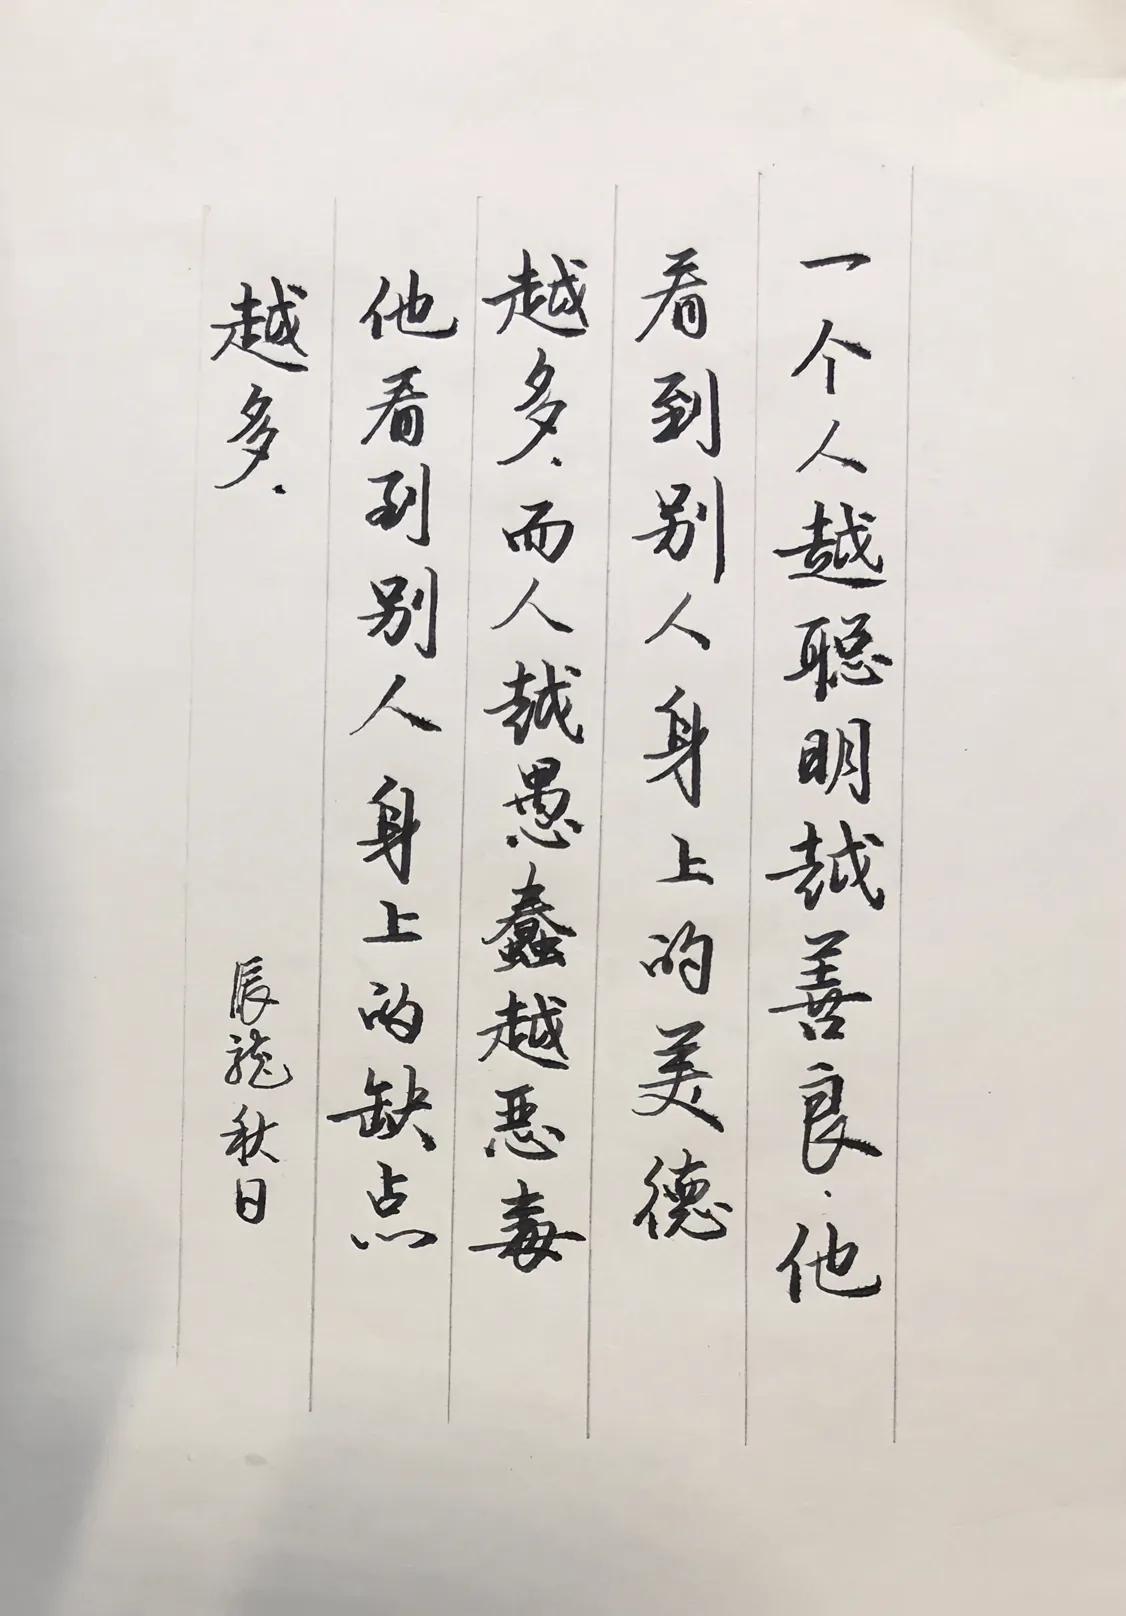 一个人越聪明越善良.他
看到别人身上的美德
越多.而人越愚蠢越恶毒
他看到别人身上的缺点
越多.
辰龙秋日